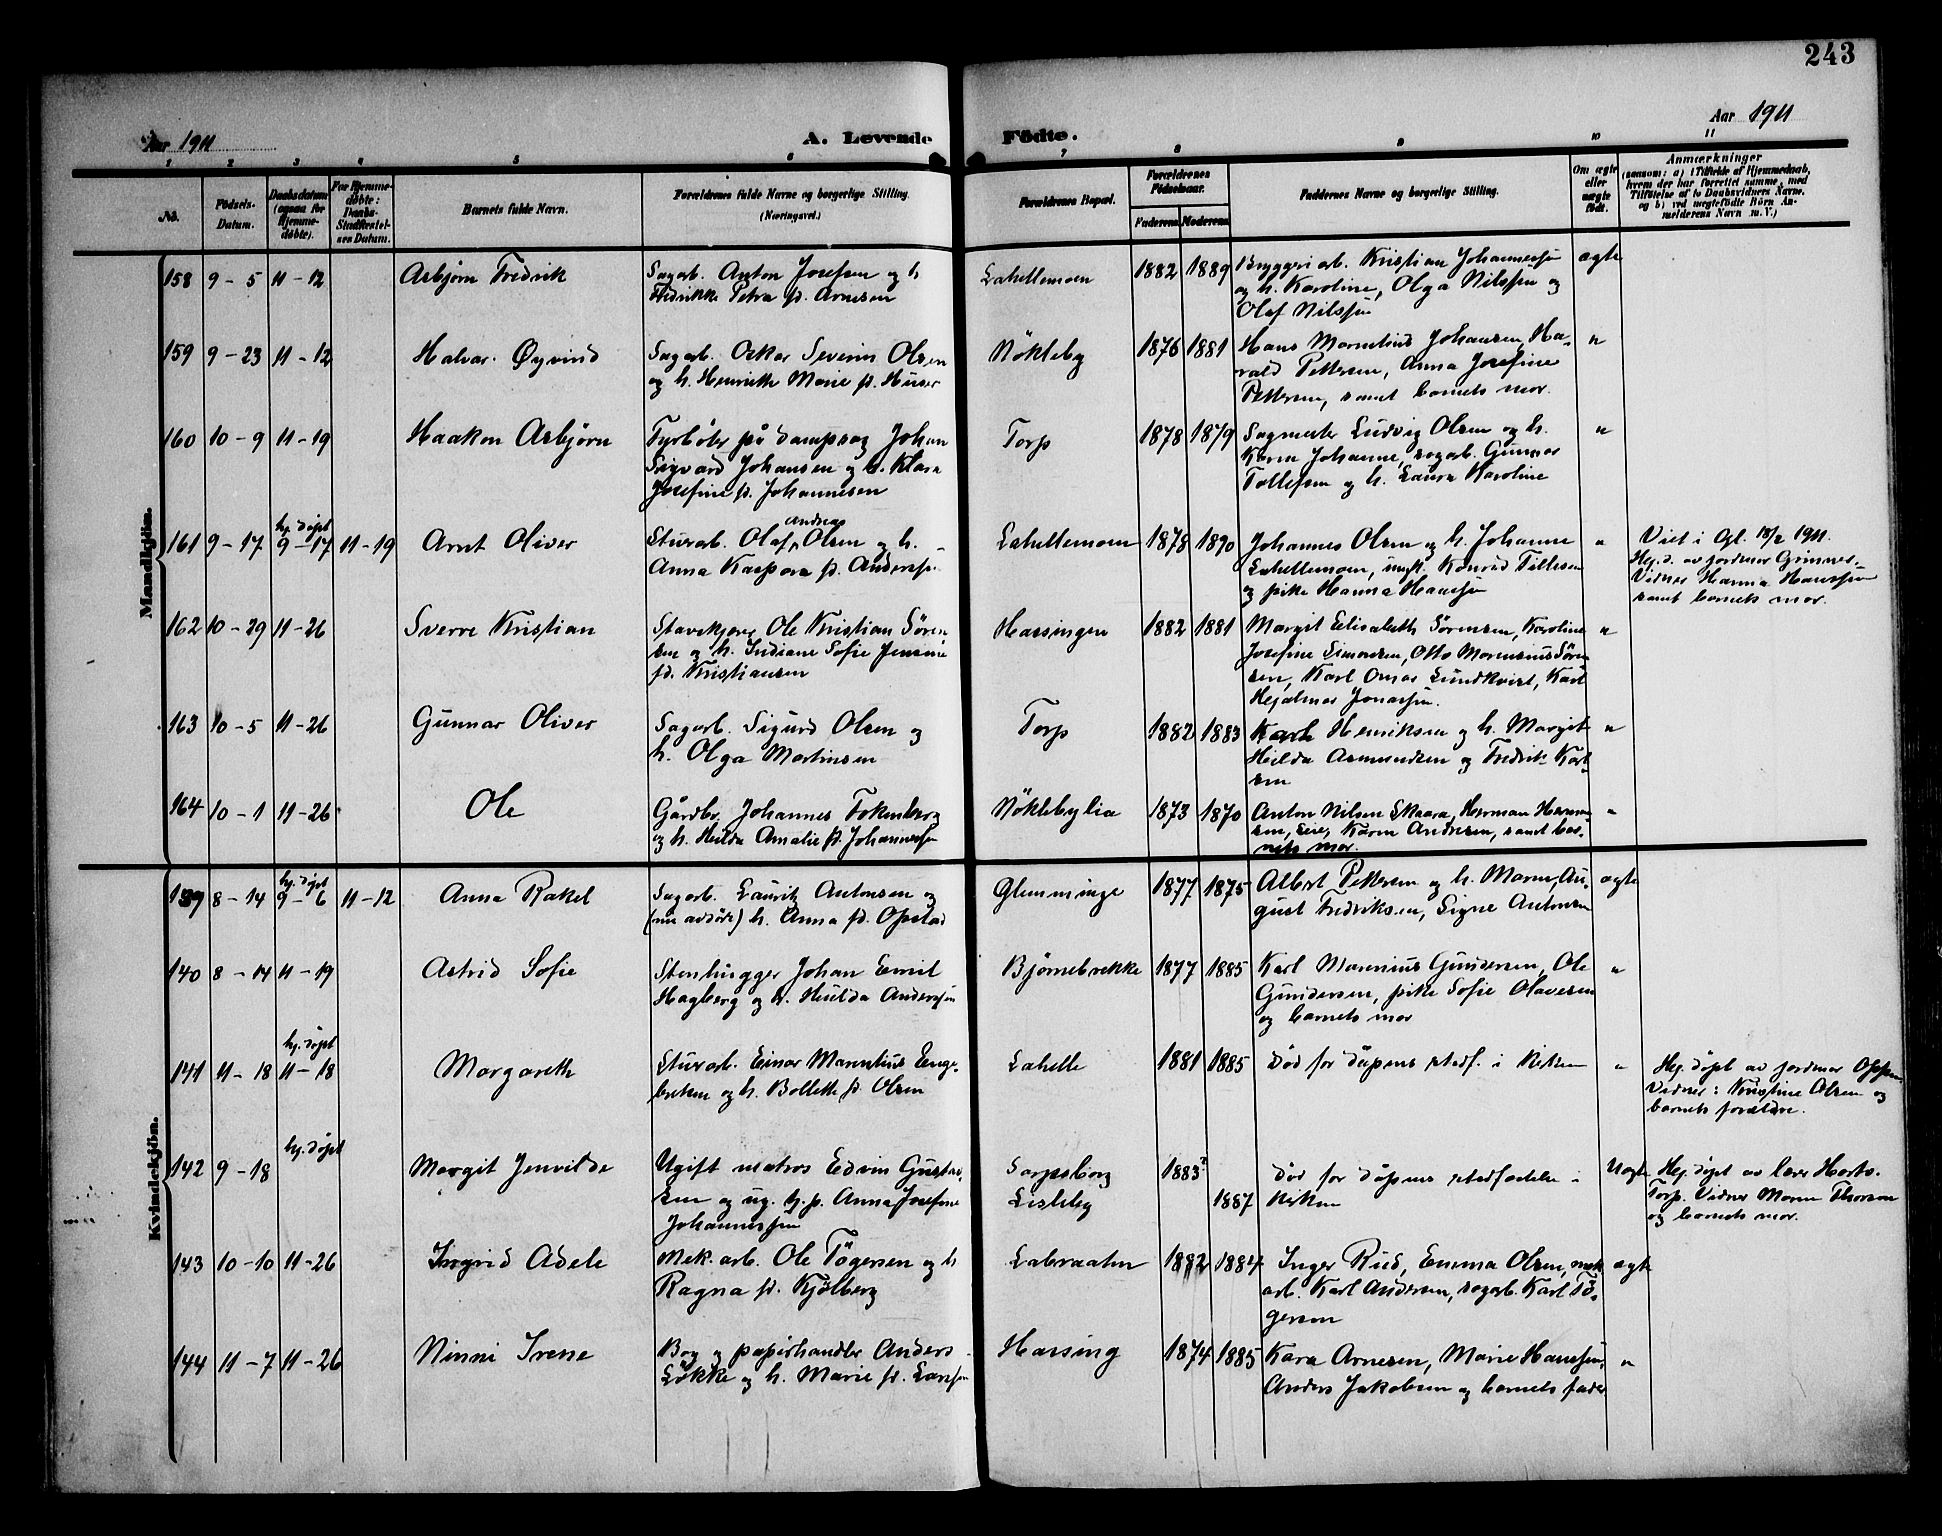 243
Aar 1911
A. Levende Födte.
Aar 1911
1 2 3 4 5 6 7 8 9 10 11
No.
Födsels-Datum.
Daabsdatum (ogsaa for Hjemme-döbte).
For Hjemme-döbte: Daabs-Stadfæstel-ses Datum.
Barnets fulde Navn.
Forældrenes fulde Navne og borgerlige Stilling. (Næringsvei.)
Forældrenes Bopæl.
Forældrenes Födselsaar.
Faderens Moderens
Faddernes Navne og borgerlige Stilling.
Om ægte eller uægte födt.
Anmærkninger
(saasom: a) i Tilfælde af Hjemmedaab, hvem der har forrettet samme, med Tilföielse af to Daabsvidners Navne. og b) ved uægtefödte Börn Anmelderens Navn m. V.)
Mandkjön.
158 9-5 11-12 Asbjörn Fredrik
Sagarb. Anton Josefsen og h.
Fredrikke Petra f. Arnesen
Lahellemoen 1882 1889
Bryggeriarb. Kristian Johannessen
og h. Karoline, Olga Nilssen og
Olaf Nilssen
ægte
159 9-23 11-12 Halvar Øyvind
Sagarb. Oskar Severin Olsen
og h. Henriette Marie f. Huser
Nökleby 1876 1881
Hans Marnelius Johansen, Ha-
rald Pettersen, Anna Josefine
Pettersen, samt barnets mor.
"
160 10-9 11-19 Haakon Asbjörn
Fyrböter på dampsag Johan
Sigvard Johansen og h. Klara
Josefine f. Johannesen
Torp 1878 1879
Sagmester Ludvig Olsen og h.
Karen Johanne, sagarb. Gunnar
Tollefsen og h. Laura Karoline
"
161 9-17 hj. döpt 9-17 11-19 Arnt Oliver
Stuarb. Olaf Andreas Olsen og h.
Anna Kaspara f. Anderssen
Lahellemoen 1878 1890
Johannes Olsen og h. Johanne
Lahellemoen, ungk. Konrad Tillesen
og pike Hanna Hanssen
"
Viet i Gl. 18/2 1911.
Hj.d. av jordmor Grimnes.
Vidner Hanna Hanssen
samt barnets mor.
162 10-29 11-26 Sverre Kristian
Stavskjærer Ole Kristian Sören-
sen og h. Indiane Sofie Jensine
f. Kristiansen
Hassingen 1882 1881
Margit Elisabeth Sörensen, Karoline
Josefine Simonsen, Otto Marensius Sören-
sen, Karl Omar Lundkvist, Karl
Hjalmar Jonassen.
"
163 10-5 11-26 Gunnar Oliver
Sagarb. Sigurd Olsen og
h. Olga Martinsen
Torp 1882 1883
Karl Henriksen og h. Margit
Hilda Asmundsen og Fredrik Karl-
sen
"
164 10-1 11-26 Ole
Gårdbr. Johannes Fokenberg
og h. Hilda Amalie f. Johannessen
Nöklebylia 1873 1870
Anton Nilsen Skaara, Herman Herman-
sen, Karen Andresen, samt bar-
nets mor.
"
Kvindekjön.
139 8-14 hj. döpt 9-6 11-12 Anna Rakel
Sagarb. Lauritz Antonsen og
(nu avdöde) h. Anna f. Opstad
Glemminge 1877 1875
Albert Pettersen og h. Maren, Au-
gust Fredriksen, Signe Antonsen
ægte
140 8-14 11-19 Astrid Sofie
Stenhugger Johan Emil
Hagberg og h. Hulda Anderssen
Björnebrekke 1877 1885
Karl Marenius Gundersen, Ole
Gundersen, pike Sofie Olavesen
og barnets mor
"
141 11-18 hj. döpt 11-18 Margareth
Stuarb. Einar Marentius Enge-
bretsen og h. Bollette f. Olsen
Lahelle 1881 1885
Död för dåpens stadf. i Kirken
"
Hj. döpt av jordmor Oppen
Vidner: Kristine Olsen og
barnets forældre.
142 9-18 hj. döpt Margit Jenvilde
Ugift matros Edvin Gustav-
sen og ug. tj.p. Anna Josefine
Johannessen
Sarpsborg
Lisleby
1883? 1887
Död för dåpens stadfæstelse i
Kirken
Uægte
Hj. döpt av lærer Hartv.
Torp. Vidner Maren Thorson
og barnets mor.
143 10-10 11-26 Ingrid Adele
Mek. arb. Ole Tögersen og h
Ragna f. Kjölberg
Labraaten 1882 1884
Inger Rud, Emma Olsen, mek
arb. Karl Andersen, sagarb. Karl Tö-
gersen
ægte
144 11-7 11-26 Ninni Irene
Bog og papirhandler Anders
Lökke og h. Marie f. Larssen
Hassing 1874 1885
Kara Arnesen, Marie Hanssen,
Anders Jakobsen og barnets fader
"